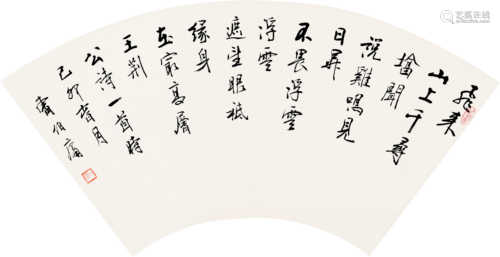 飛来
山上千尋
塔聞
說雞鳴見
日昇
不畏浮雲
浮雲
遮望眼祗
緣身
在最高層
王荊
公詩一首時
己卯月
伯